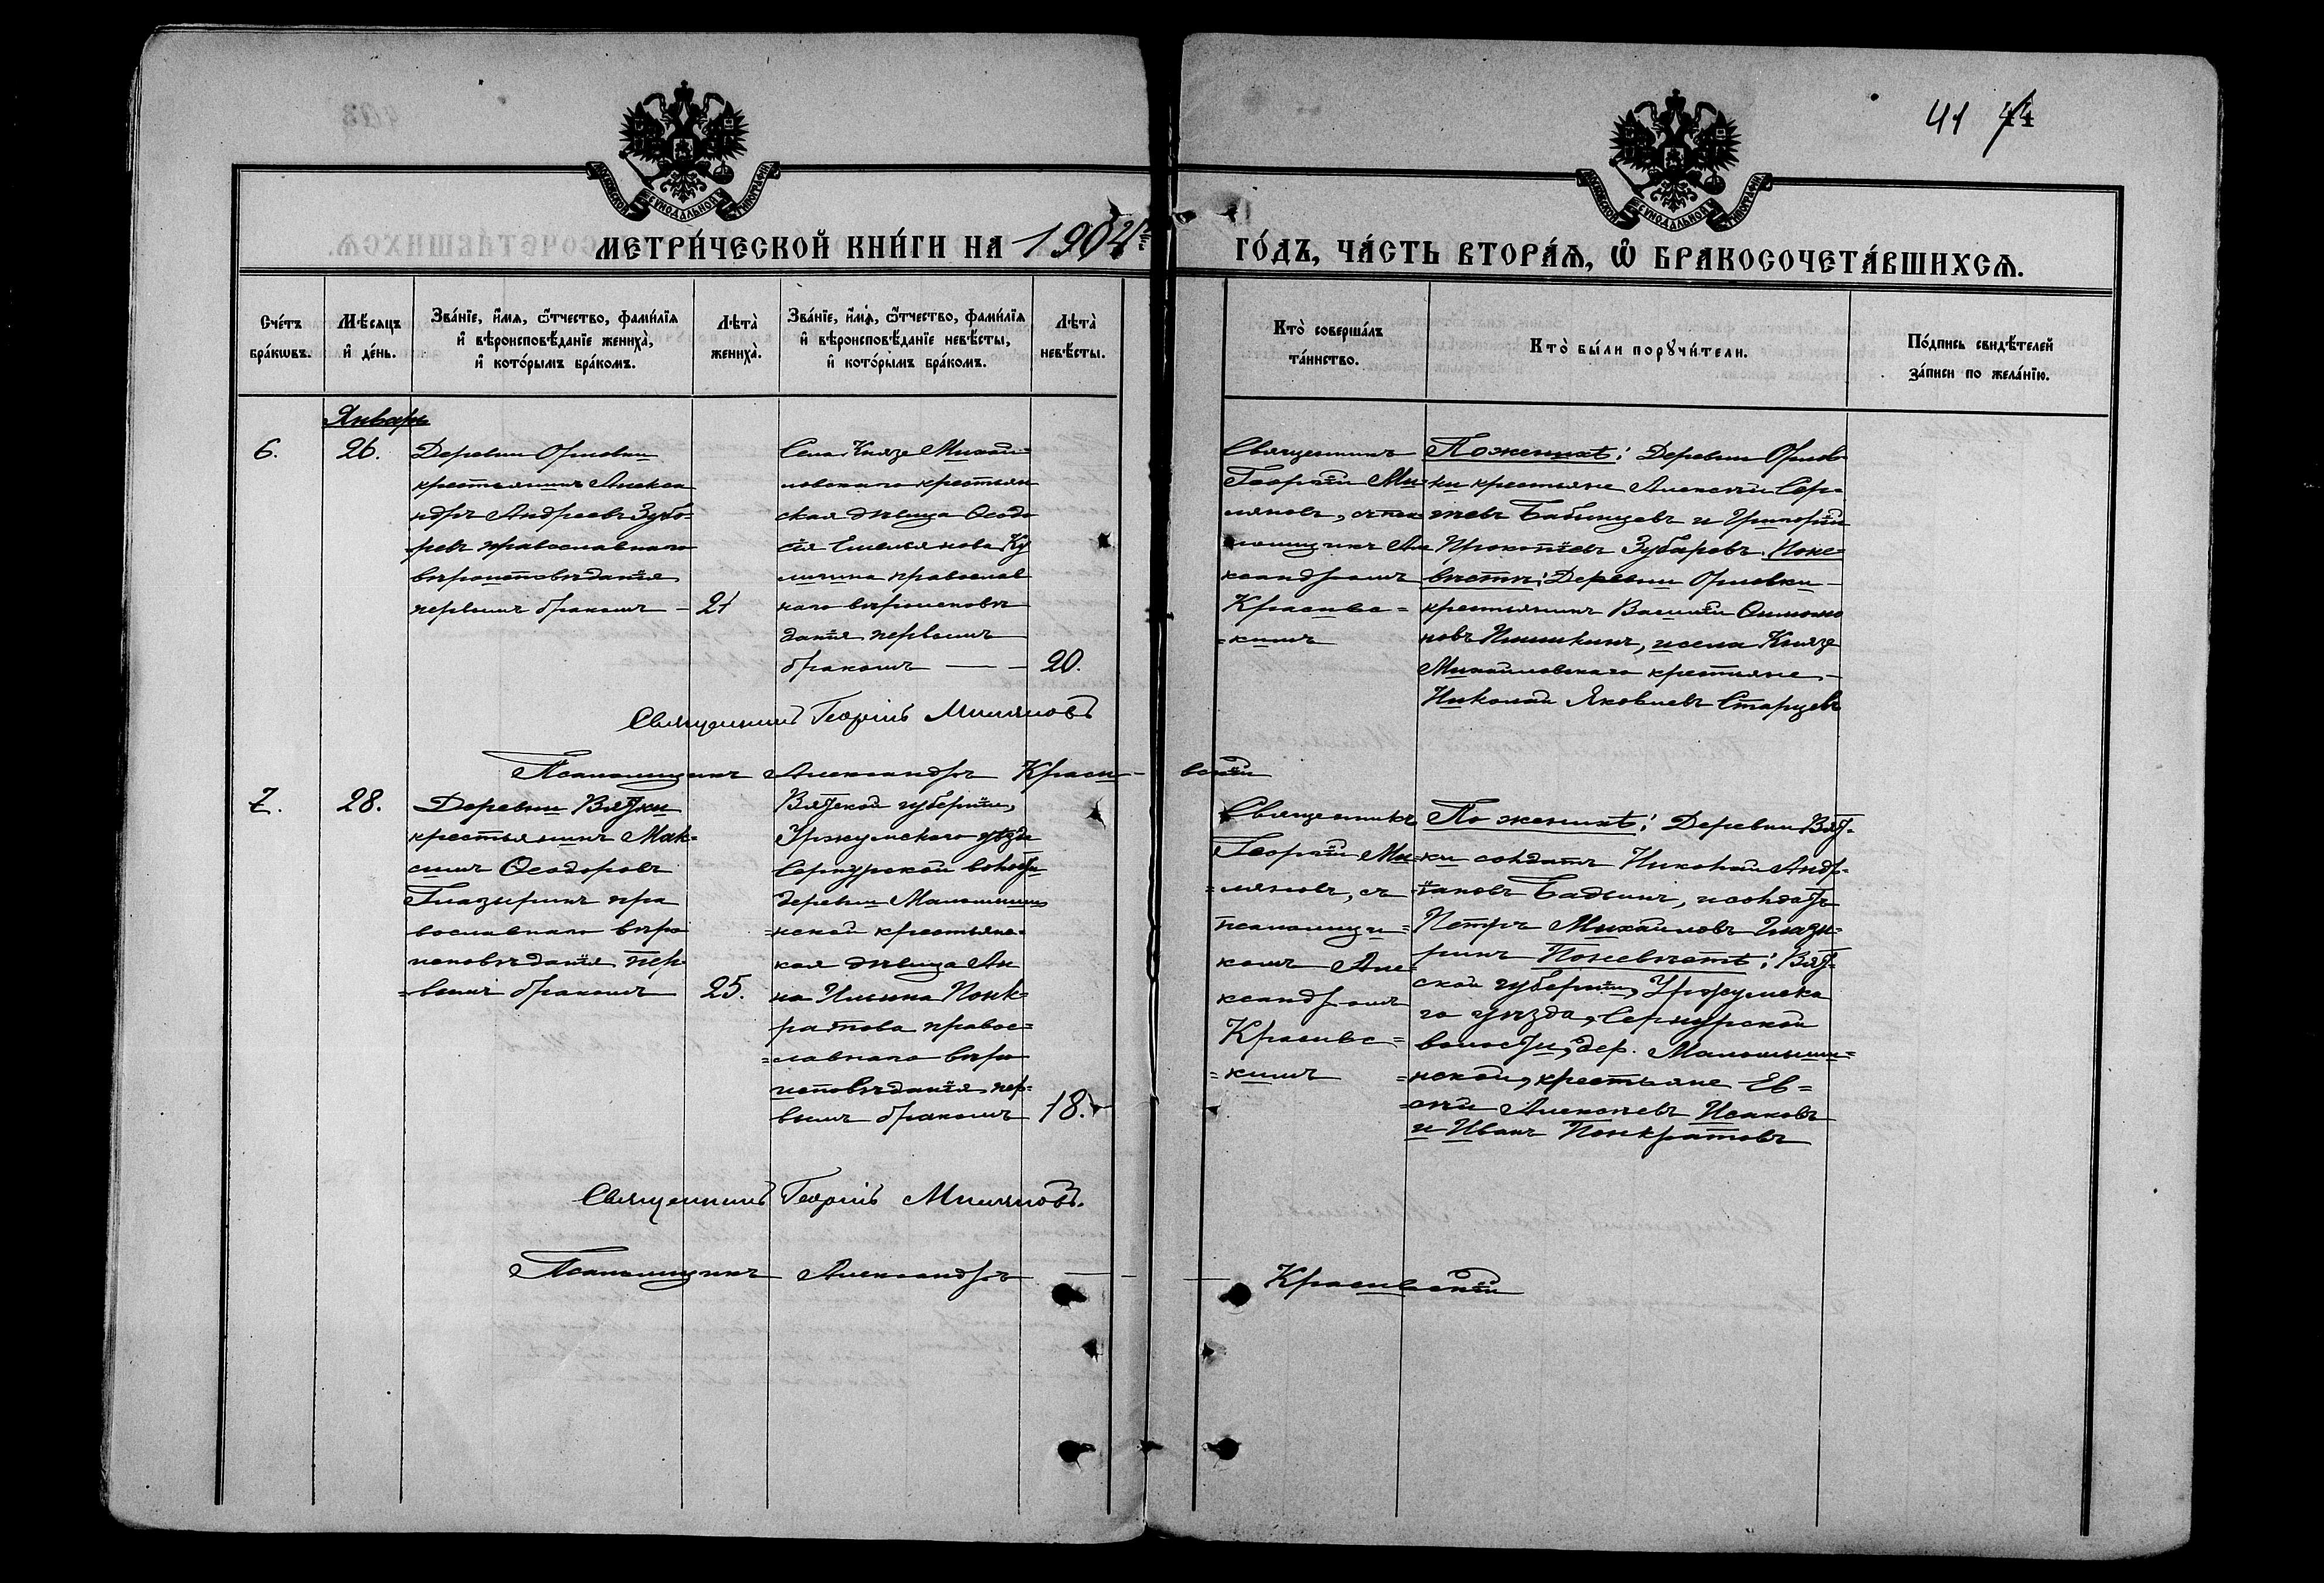 41 44
МЕТРИ́ЧЕСКОЙ КНИ́ГИ НА 1904
ГО́ДЪ, ЧА́СТЬ ВТОРА́Ѧ, Ѽ БРАКОСОЧЕТА́ВШИХСѦ.
Сче́тъ бра́кѡвъ.
Мѣ́сѧцъ и҆ де́нь.
Зва́нїе, и҆́мѧ, ѻ҆́тчество, фами́лїѧ
и҆ вѣроисповѣ́данїе жениха̀,
и҆ кото́рымъ бра́комъ.
Лѣта̀ жениха̀.
Зва́нїе, и҆́мѧ, ѻ҆́тчество, фами́лїѧ
и҆ вѣроисповѣ́данїе невѣ́сты,
и҆ кото́рымъ бра́комъ.
Лѣта̀ невѣ́сты.
Кто̀ соверша́лъ
та́инство.
Кто̀ бы́ли порꙋчи́тели.
По́дпись свидѣ́телей
за́писи по жела́нїю.
Январь
6.
26.
Деревни Орловки
крестьянинъ Алекса
ндръ Андреевъ Зуба-
ревъ православнаго
вѣроисповѣданія
первымъ бракомъ – 21
Села Князе Михай-
ловскаго крестьян
ская дѣвица Ѳеодо
сія Емельянова Ку
лигина православ
наго вѣроисповѣ
данія первымъ
бракомъ — 20.
Священникъ
Георгій Ми-
ляновъ, съ пса
ломщикъ Але
ксандромъ
Красивс=
=кимъ
По женихѣ: Деревни Орлов-
ки крестьяне Алексѣй Сер-
гѣевъ Бабинцевъ и Григорій
Прокопіевъ Зубаревъ. По не-
вѣстѣ: Деревни Орловки –
крестьянинъ Василій
новъ Пишкинъ, и села Князе
Михайловскаго крестьяне –
Николай Яковлевъ Старцевъ
Священникъ Георгій Миляновъ
Псаломщикъ Александръ Краси-
вскій
7.
28.
Деревни Вятки
крестьянинъ Мак-
симъ Ѳеодоровъ
Глазыринъ пра
вославнаго вѣро
исповѣданія пер-
=вымъ бракомъ 25.
Вятской губерніи,
Уржумскаго уѣзда
Сернурской волости
деревни
=нской крестьянс-
кая дѣвица Ан
на Ильина Понк-
ратова правос=
=лавнаго вѣро
исповѣданія пер-
вымъ бракомъ 18.
Священникъ
Георгій Ми=
=ляновъ, съ
псаломщи=
комъ Але=
ксандромъ
Красивс=
=кимъ
По женихѣ: Деревни Вят-
ки солдатъ Николай Андр-
=іановъ Бадьинъ, и солдатъ
Петръ Михайловъ Глазы-
ринъ По невѣстѣ: Вят-
ской губерніи, Уржумска
го уѣзда, Сернурской
волости, дер.
=нской, крестьяне Ев=
=сѣй Алексѣевъ Исаковъ
и Иванъ Понкратовъ
Священникъ Георгій Миляновъ.
Псаломщикъ Александръ — Красивскій